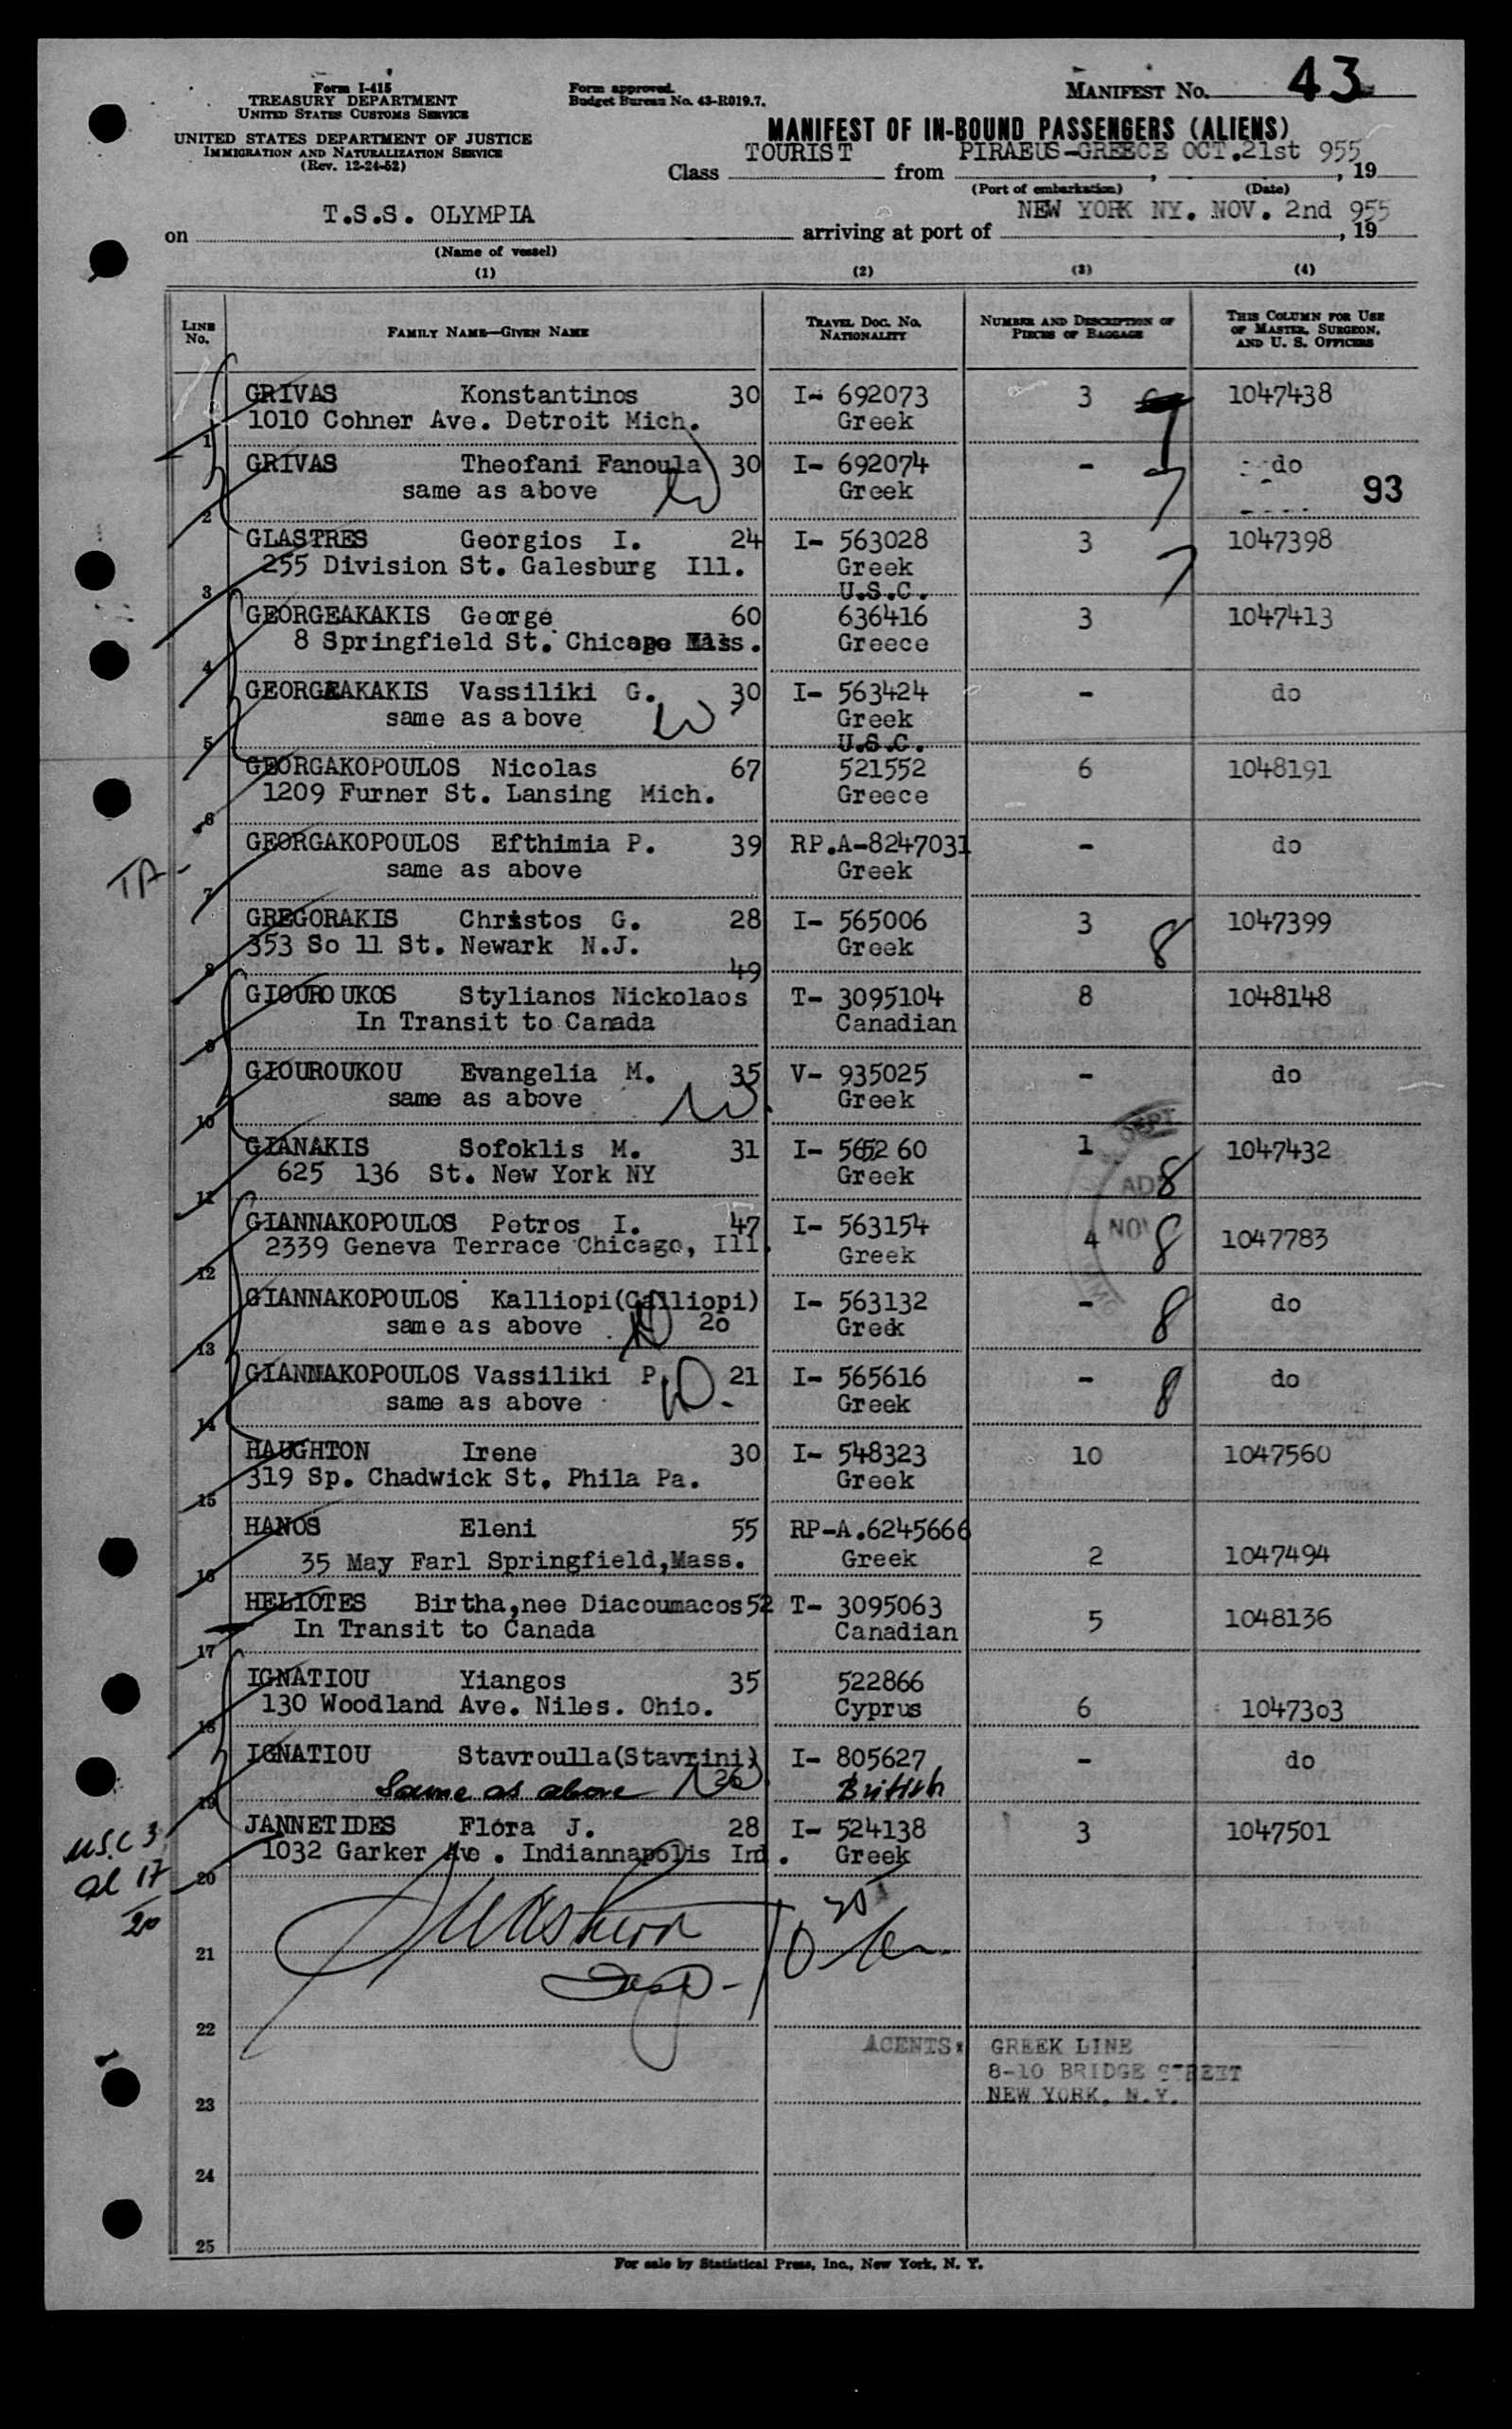 Form I-415
TREASURY DEPARTMENT
UNITED STATES CUSTOMS SERVICE
UNITED STATES DEPARTMENT OF JUSTICE
IMMIGRATION AND NATURALIZATION SERVICE
(Rev. 12-24-52)
Form approved.
Budget Bureau No. 43-R019.7.
MANIFEST NO. 43
MANIFEST OF IN-BOUND PASSENGERS (ALIENS)
Class TOURIST from PIRAEUS-GREECE OCT.21st 955, 19
(Port of embarkation) (Date)
on T.S.S. OLYMPIA arriving at port of NEW YORK NY. NOV. 2nd 955, 19
(Name of vessel)
(1) (2) (3) (4)
LINE No. FAMILY NAME—GIVEN NAME TRAVEL DOC. NO. NATIONALITY NUMBER AND DESCRIPTION OF PIECES OF BAGGAGE THIS COLUMN FOR USE OF MASTER, SURGEON, AND U. S. OFFICERS
GRIVAS Konstantinos 30 I- 692073 3 1047438
1 1010 Cohner Ave. Detroit Mich. Greek 7
GRIVAS Theofani Fanoula 30 I- 692074 - 7 do
2 same as above W Greek 93
GLASTRES Georgios I. 24 I- 563028 3 7 1047398
3 255 Division St. Galesburg Ill. Greek
U.S.C.
GEORGEAKAKIS George 60 636416 3 1047413
4 8 Springfield St. Chicopo Mass. Greece
GEORGEAKAKIS Vassiliki G. 30 I- 563424 - do
5 same as above W Greek
U.S.C.
GEORGAKOPOULOS Nicolas 67 521552 6 1048191
6 1209 Furner St. Lansing Mich. Greece
GEORGAKOPOULOS Efthimia P. 39 RP.A-8247031 - do
TA-
7 same as above Greek
GREGORAKIS Christos G. 28 I- 565006 3 8 1047399
8 353 So 11 St. Newark N.J. Greek
49
GIOUROUKOS Stylianos Nickolaos T- 3095104 8 1048148
9 In Transit to Canada Canadian
GIOUROUKOU Evangelia M. 35 V- 935025 - do
10 same as above W. Greek
GIANAKIS Sofoklis M. 31 I- 565260 1 8 1047432
11 625 136 St. New York NY Greek
GIANNAKOPOULOS Petros I. 47 I- 563154 4 8 1047783
12 2339 Geneva Terrace Chicago, Ill. Greek
GIANNAKOPOULOS Kalliopi(Calliopi) I- 563132 - 8 do
13 same as above 20 Greek
GIANNAKOPOULOS Vassiliki P. 21 I- 565616 - 8 do
14 same as above Greek
HAUGHTON Irene 30 I- 548323 10 1047560
15 319 Sp. Chadwick St. Phila Pa. Greek
HANOS Eleni 55 RP-A.6245666
16 35 May Farl Springfield,Mass. Greek 2 1047494
HELIOTES Birtha,nee Diacoumacos 52 T- 3095063 5 1048136
17 In Transit to Canada Canadian
IGNATIOU Yiangos 35 522866
18 130 Woodland Ave. Niles. Ohio. Cyprus 6 1047303
IGNATIOU Stavroulla(Stavrini) I- 805627 - do
19 Same as above 26 British
JANNETIDES Flora J. 28 I- 524138 3 1047501
20 1032 Garker Ave. Indiannapolis Ind. Greek
U.S.C 3
al 17
20
21
22
AGENTS: GREEK LINE
8-10 BRIDGE STREET
23 NEW YORK, N.Y.
24
25
For sale by Statistical Press, Inc., New York, N. Y.